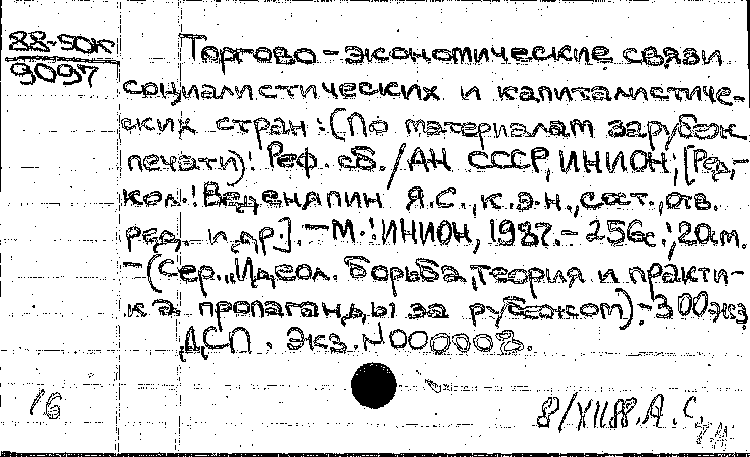 88-50к
9097
Торгово-экономические связи
социалистических и капиталистиче-
ских стран: (По материалам зарубеж.
печати): Реф. сб. / АН СССР, ИНИОН; [Ред.-
кол.: Веденяпин Я.С., к.э.н., сост., отв.
ред. и др.]. - М.: ИНИОН, 1987. - 256с.; 20см.
- (Сер. „Идеол. борьба, теория и практи-
ка пропаганды за рубежом). - 300экз
ДСП. Экз. N000008.
16
8/XII88. А. С.